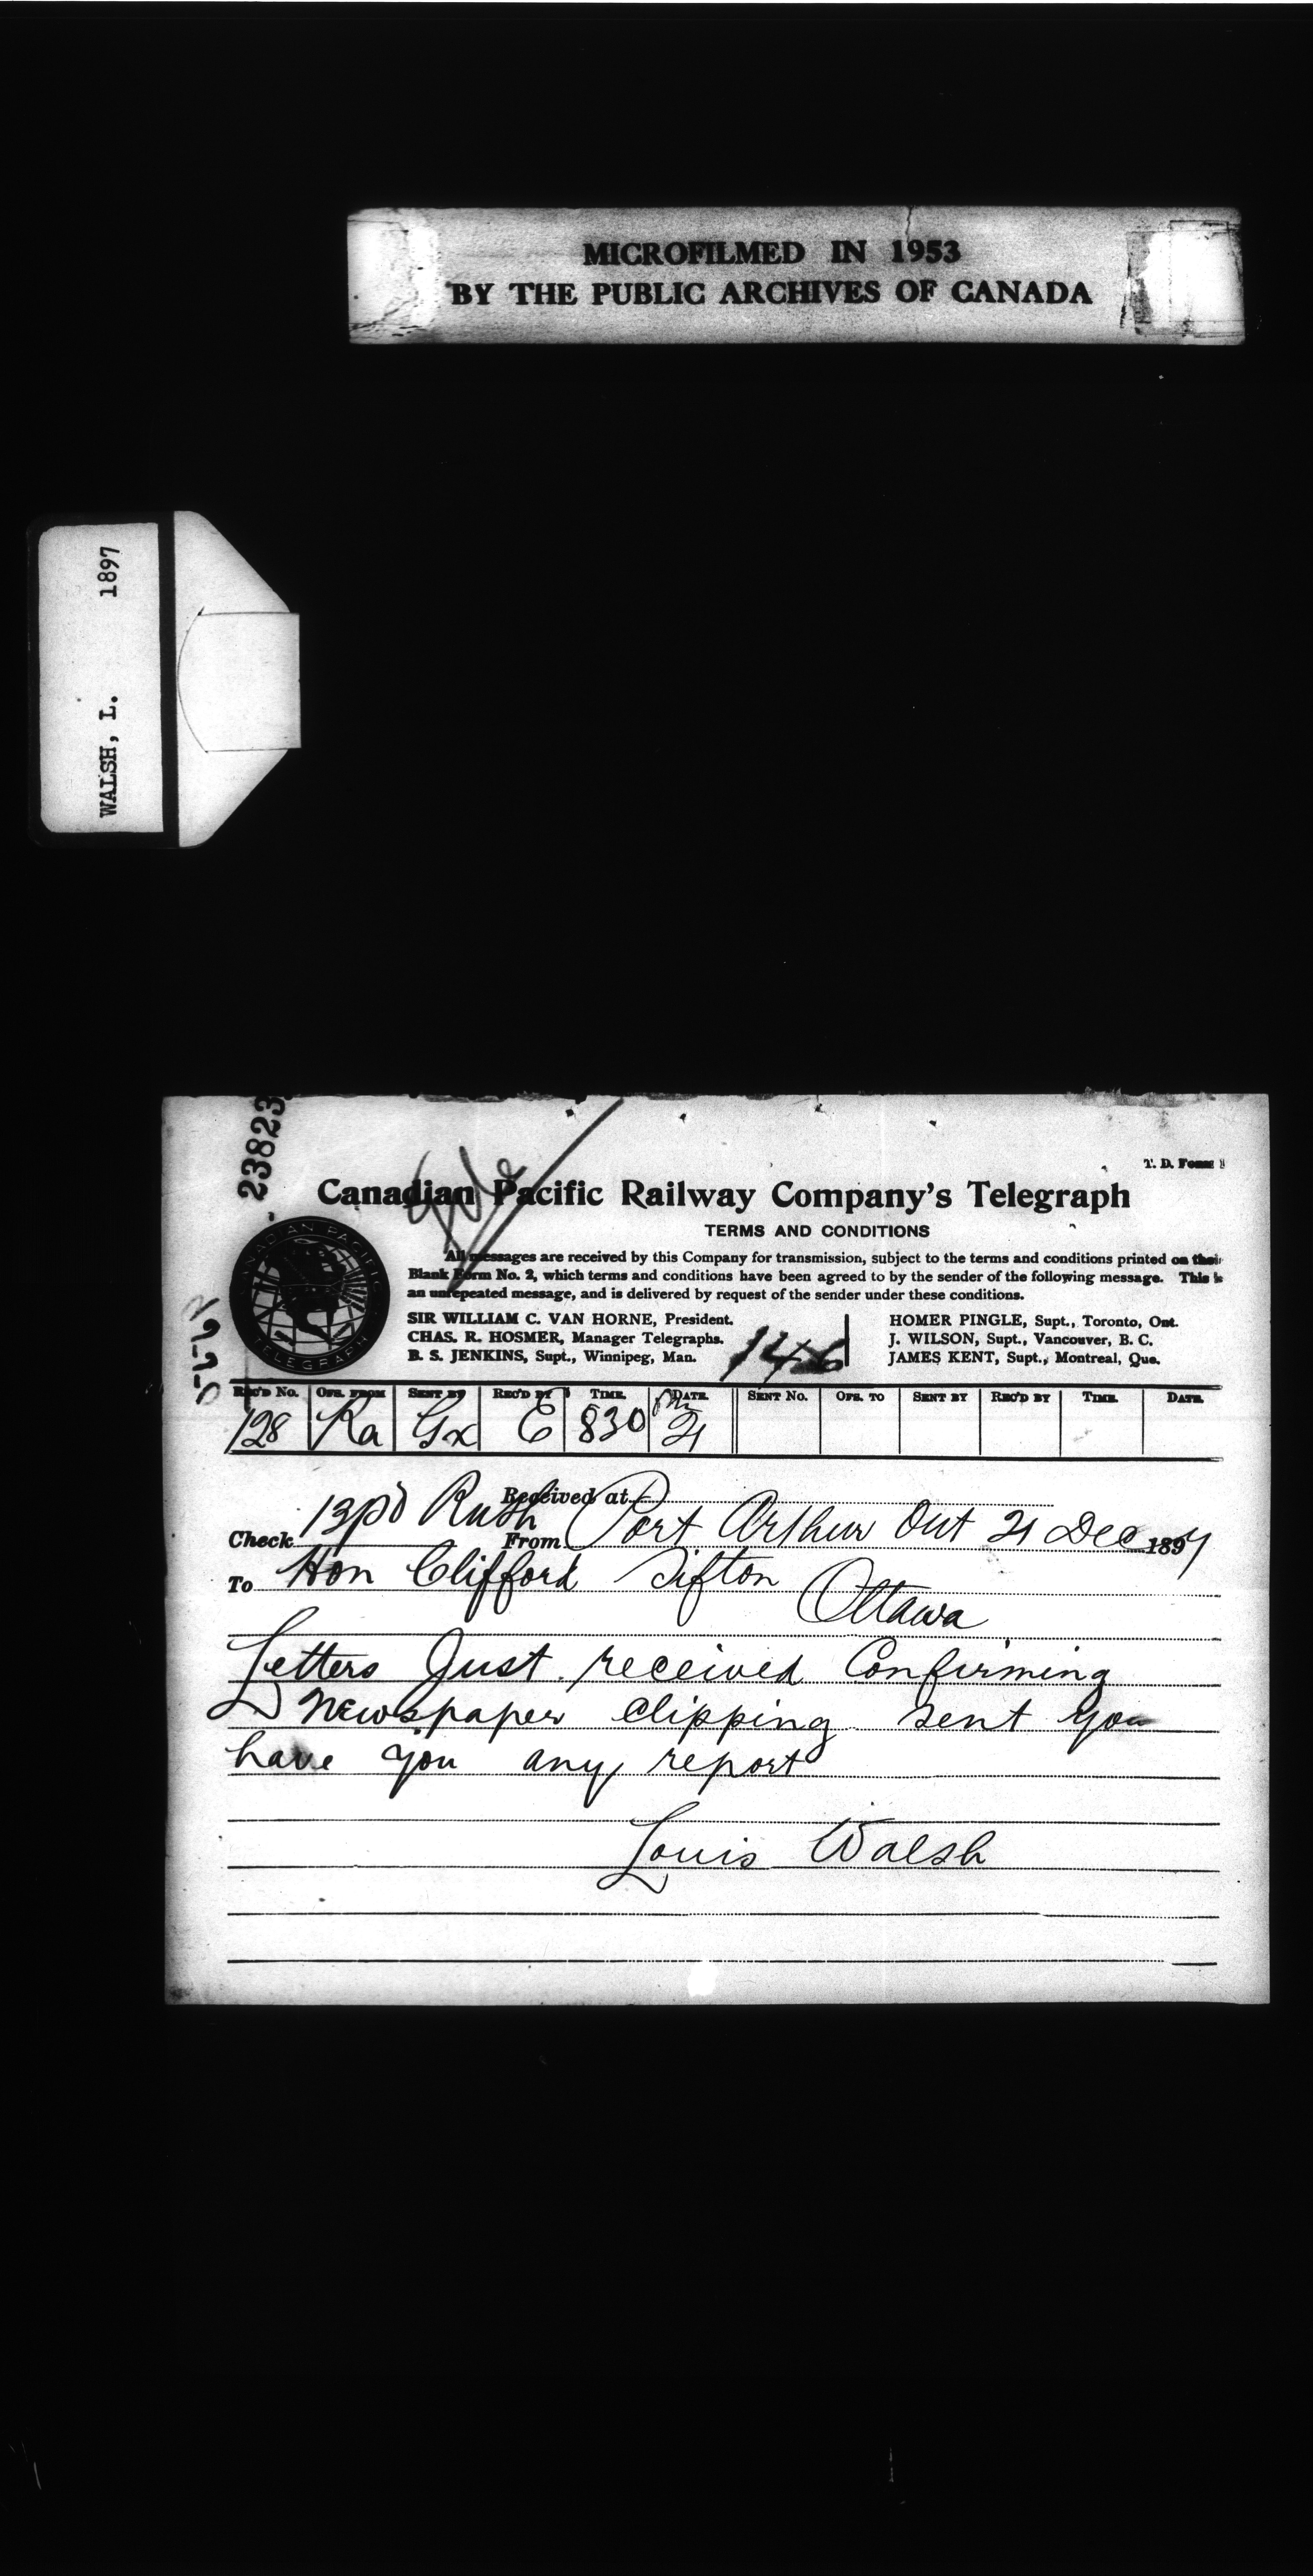 MICROFILMED IN 1953
BY THE PUBLIC ARCHIVES OF CANADA
WALSH, L. 1897
23823
T. D. Form
Canadian Pacific Railway Company's Telegraph
TERMS AND CONDITIONS
All messages are received by this Company for transmission, subject to the terms and conditions printed on their
Blank Form No. 2, which terms and conditions have been agreed to by the sender of the following message. This is
an unrepeated message, and is delivered by request of the sender under these conditions.
SIR WILLIAM C. VAN HORNE, President.
CHAS. R. HOSMER, Manager Telegraphs.
B. S. JENKINS, Supt., Winnipeg, Man.
146
HOMER PINGLE, Supt., Toronto, Ont.
J. WILSON, Supt., Vancouver, B. C.
JAMES KENT, Supt., Montreal, Que.
CANADIAN PACIFIC TELEGRAPH
REC'D No. OFS. FROM SENT BY REC'D BY TIME. DATE. SENT No. OFS. TO SENT BY REC'D BY TIME. DATE.
128 Ra Gx E 830 21
Received at
Check 13pd Rush From Port Arthur Ont 21 Dec 1897
To Hon Clifford Sifton
Ottawa
Letters Just received Confirming
Newspaper Clipping sent you
have you any report
Louis Walsh